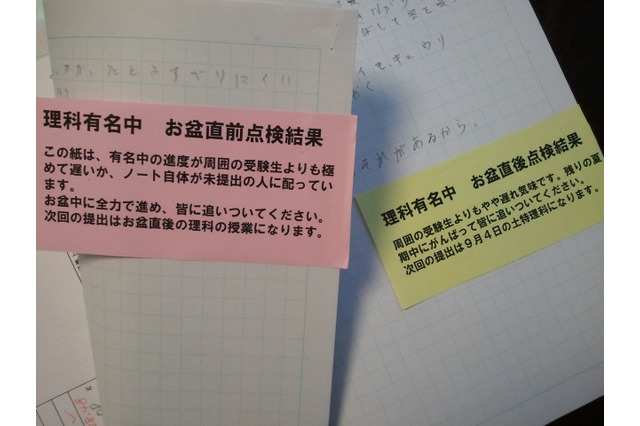 理科有名中　お盆直前点検結果
この紙は、有名中の進度が周囲の受験生よりも極
めて遅いか、ノート自体が未提出の人に配ってい
ます。
お盆中に全力で進め、皆に追いついてください。
次回の提出はお盆直後の理科の授業になります。
それがあるから。
理科有名中　お盆直後点検結果
周囲の受験生よりもやや遅れ気味です。残りの夏
期中にがんばって皆に追いついてください。
次回の提出は９月４日の土特理科になります。